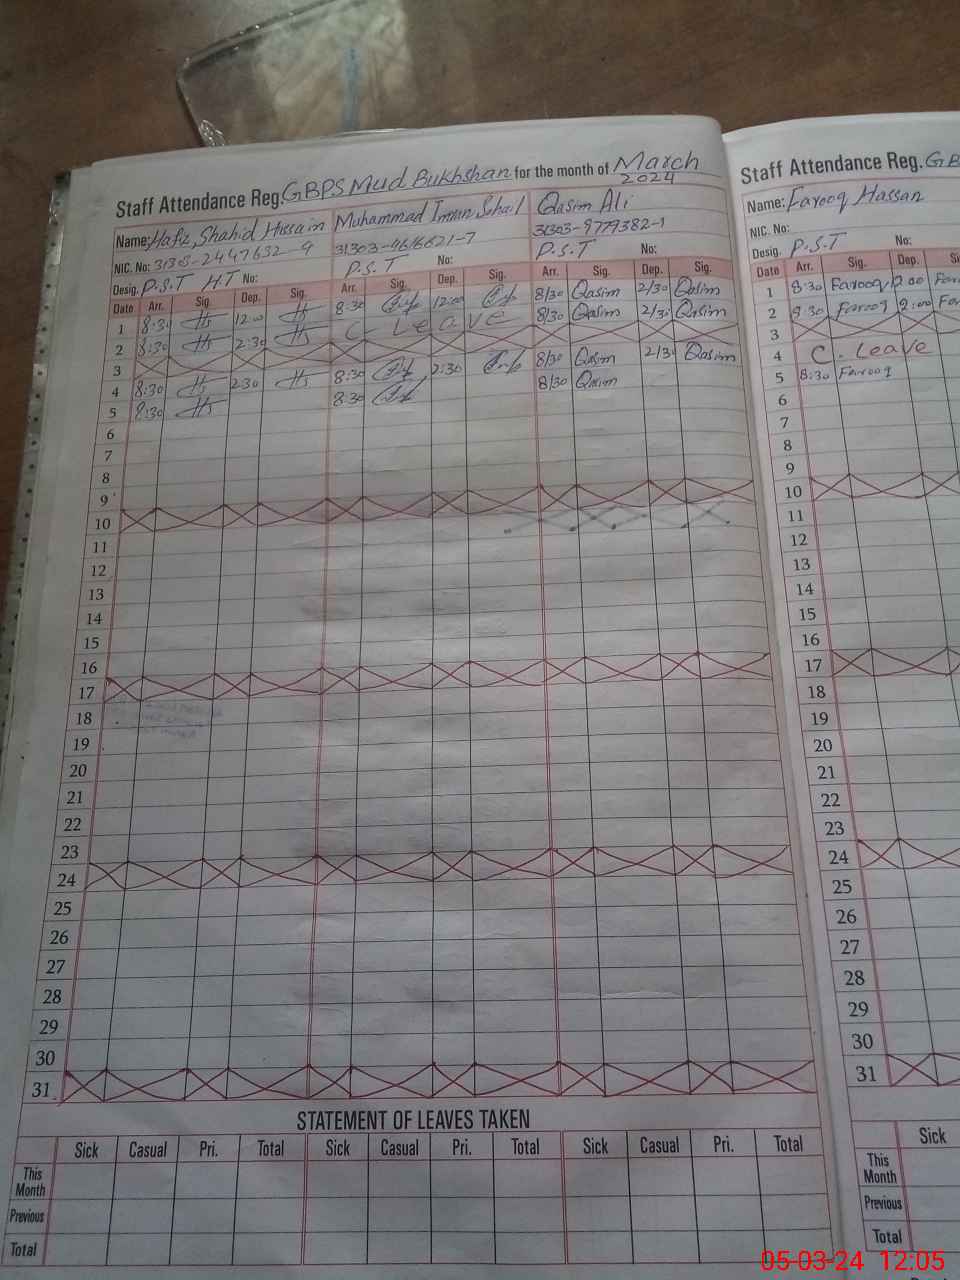 Staff Attendance Reg. GBPS Mud Bukhshan for the month of March 2024
Name: Hafiz, Shahid Hussain Muhammad Imran Sohail Qasim Ali
NIC. No: 31303-2447632-9 31303-4616621-7 31303-9779382-1
Desig. P.S.T H.T No: P.S.T No: P.S.T No:
Date Arr. Sig. Dep. Sig. Arr. Sig. Dep. Sig. Arr. Sig. Dep. Sig.
1 8:30 12:00 8:30 12:00 8/30 Qasim 2/30 Qasim
2 8:30 2:30 C - Leave 8/30 Qasim 2/30 Qasim
3
4 8:30 2:30 8:30 2:30 8/30 Qasim 2/30 Qasim
5 8:30 8:30 8/30 Qasim
6
7
8
9
10
11
12
13
14
15
16
17
18
19
20
21
22
23
24
25
26
27
28
29
30
31
STATEMENT OF LEAVES TAKEN
Sick Casual Pri. Total Sick Casual Pri. Total Sick Casual Pri. Total
This Month
Previous
Total
Staff Attendance Reg. GB
Name: Farooq Hassan
NIC. No:
Desig. P.S.T No:
Date Arr. Sig. Dep. Sig.
1 8:30 Farooq
2 8:30 Farooq 2:00
3
4 C. Leave
5 8:30 Farooq
6
7
8
9
10
11
12
13
14
15
16
17
18
19
20
21
22
23
24
25
26
27
28
29
30
31
Sick
This Month
Previous
Total
05-03-24 12:05